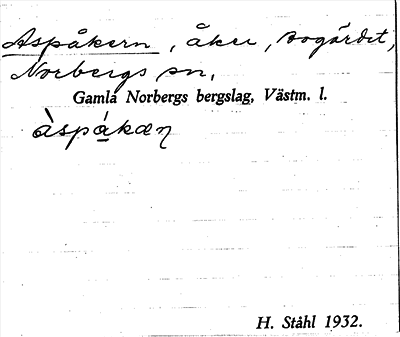 Aspåkern, åker, Bogärdet,
Norbergs sn,
Gamla Norbergs bergslag, Västm. l.
H. Ståhl 1932.